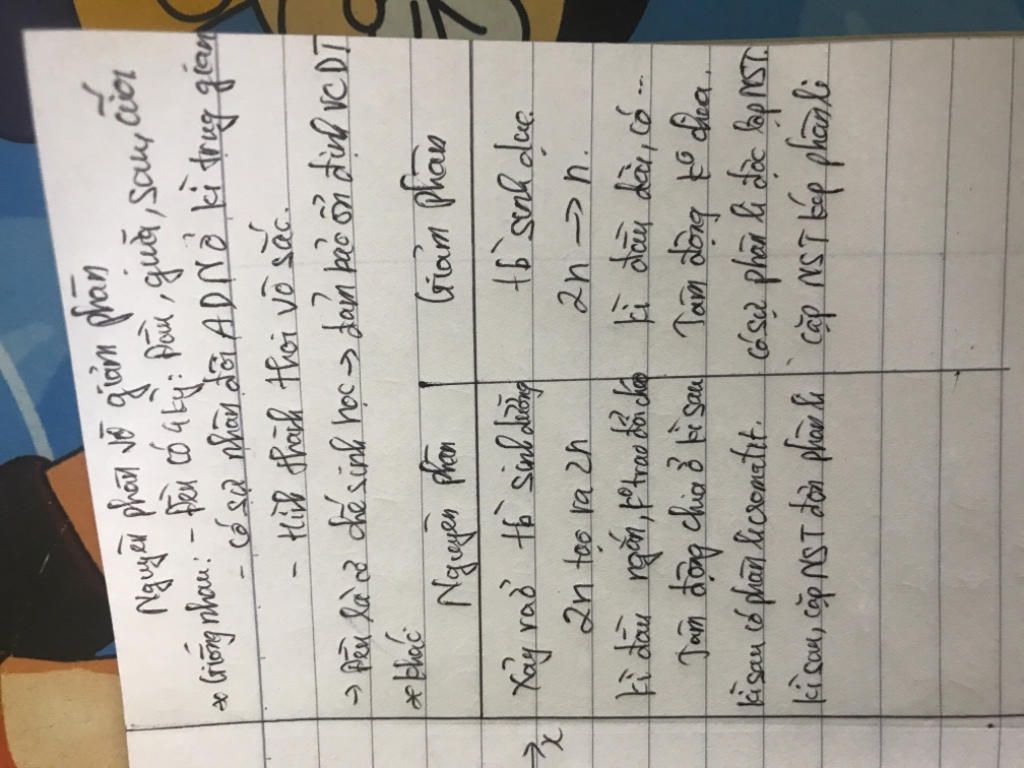 Nguyên phân vỡ giảm phân
* Giống nhau: - Đều có 4 kỳ: Đầu, giữa, sau, cuối
- Có sự nhân đôi ADN ở kì trung gian
- Hình thành thoi vô sắc.
→ Đều là cơ chế sinh học → đảm bảo ổn định VCDT
* Khác:
Nguyên phân Giảm phân
Xảy ra ở tb sinh dưỡng tb sinh dục
2n tạo ra 2n 2n → n.
kì đầu ngắn, ko trao đổi chéo kì đầu dài, có ...
Tâm động chia ở kì sau Tâm động ko chia.
kì sau có phân li cromatit. có sự phân li độc lập NST.
kì sau, cặp NST đơn phân li cặp NST kép phân li
⇒ x